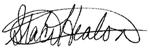 Stacy Heaton